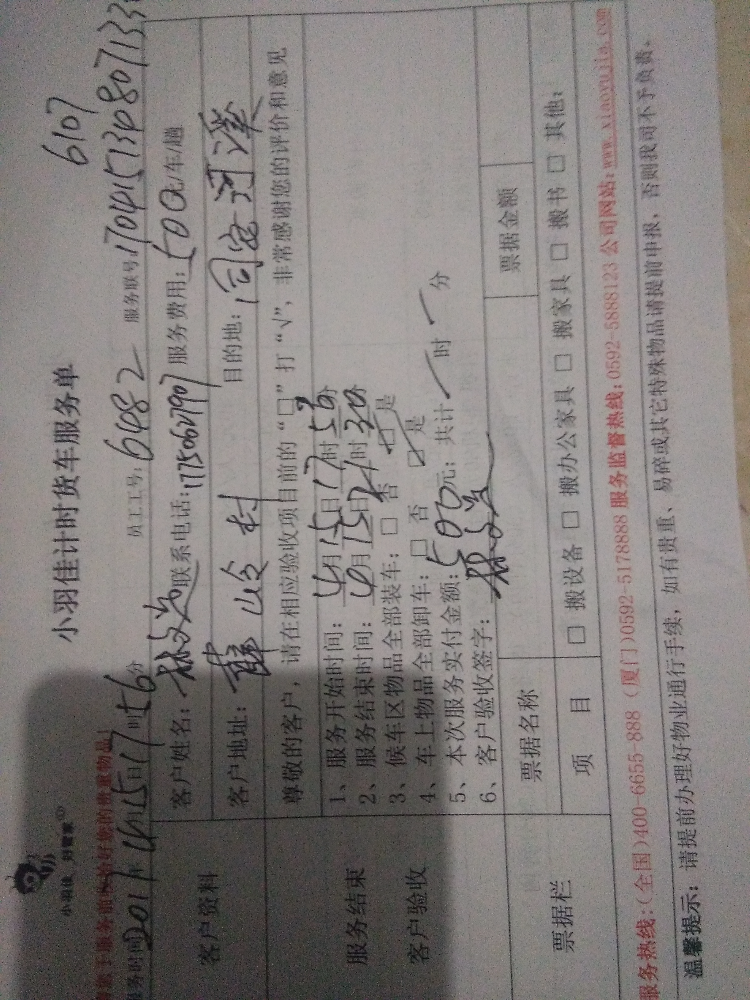 小羽佳 好管家
小羽佳计时货车服务单
6107
服务时间2017年4月15日17时56分 员工工号:6482 服务联号:
客户资料
客户姓名: 联系电话:17750627907 服务费用:500元/车/趟
客户地址:薛岭村 目的地:同安河溪
尊敬的客户，请在相应验收项目前的“□”打“√”，非常感谢您的评价和意见
服务结束
客户验收
1、服务开始时间:4月15日17时59分
2、服务结束时间:4月15日21时30分
3、候车区物品全部装车:□否 ☑是
4、车上物品全部卸车:□否 ☑是
5、本次服务实付金额:500元; 共计/时/分
6、客户验收签字:
票据栏
票据名称 票据金额
项 目 □搬设备 □搬办公家具 □搬家具 □搬书 □其他:
服务热线:(全国)400-6655-888 (厦门)0592-5178888 服务监督热线:0592-5888123 公司网站:www.xiaoyujia.com
温馨提示:请提前办理好物业通行手续，如有贵重、易碎或其它特殊物品请提前申报，否则我司不予负责。